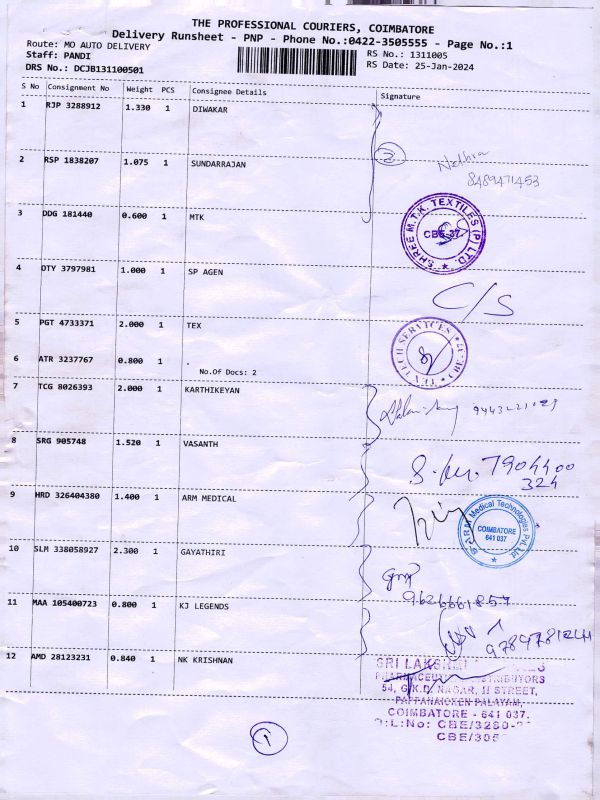 THE PROFESSIONAL COURIERS, COIMBATORE
Delivery Runsheet - PNP - Phone No.:0422-3505555 - Page No.:1
Route: MO AUTO DELIVERY
RS No.: 1311005
Staff: PANDI
RS Date: 25-Jan-2024
DRS No.: DCJB131100501
S No Consignment No Weight PCS Consignee Details Signature
1 RJP 3288912 1.330 1 DIWAKAR
2
2 RSP 1838207 1.075 1 SUNDARRAJAN
8489471453
3 DDG 181440 0.600 1 MTK
SHREE M.T.K. TEXTILES (P) LTD.
CBE-37
4 OTY 3797981 1.000 1 SP AGEN
C/S
5 PGT 4733371 2.000 1 TEX
TEX TECH SERVICES
6 ATR 3237767 0.800 1 .
No.Of Docs: 2
7 TCG 8026393 2.000 1 KARTHIKEYAN
8 SRG 905748 1.520 1 VASANTH
7904400
324
9 HRD 326404380 1.400 1 ARM MEDICAL
Medical Technologies Pvt. Ltd
COIMBATORE
641 037
10 SLM 338058927 2.300 1 GAYATHIRI
9626661857
11 MAA 105400723 0.800 1 KJ LEGENDS
12 AMD 28123231 0.840 1 NK KRISHNAN
SRI
54, G.K.D. NAGAR, II STREET,
PAPPANAICKEN PALAYAM,
COIMBATORE - 641 037.
D.L.No: CBE/3280-
CBE/305
1